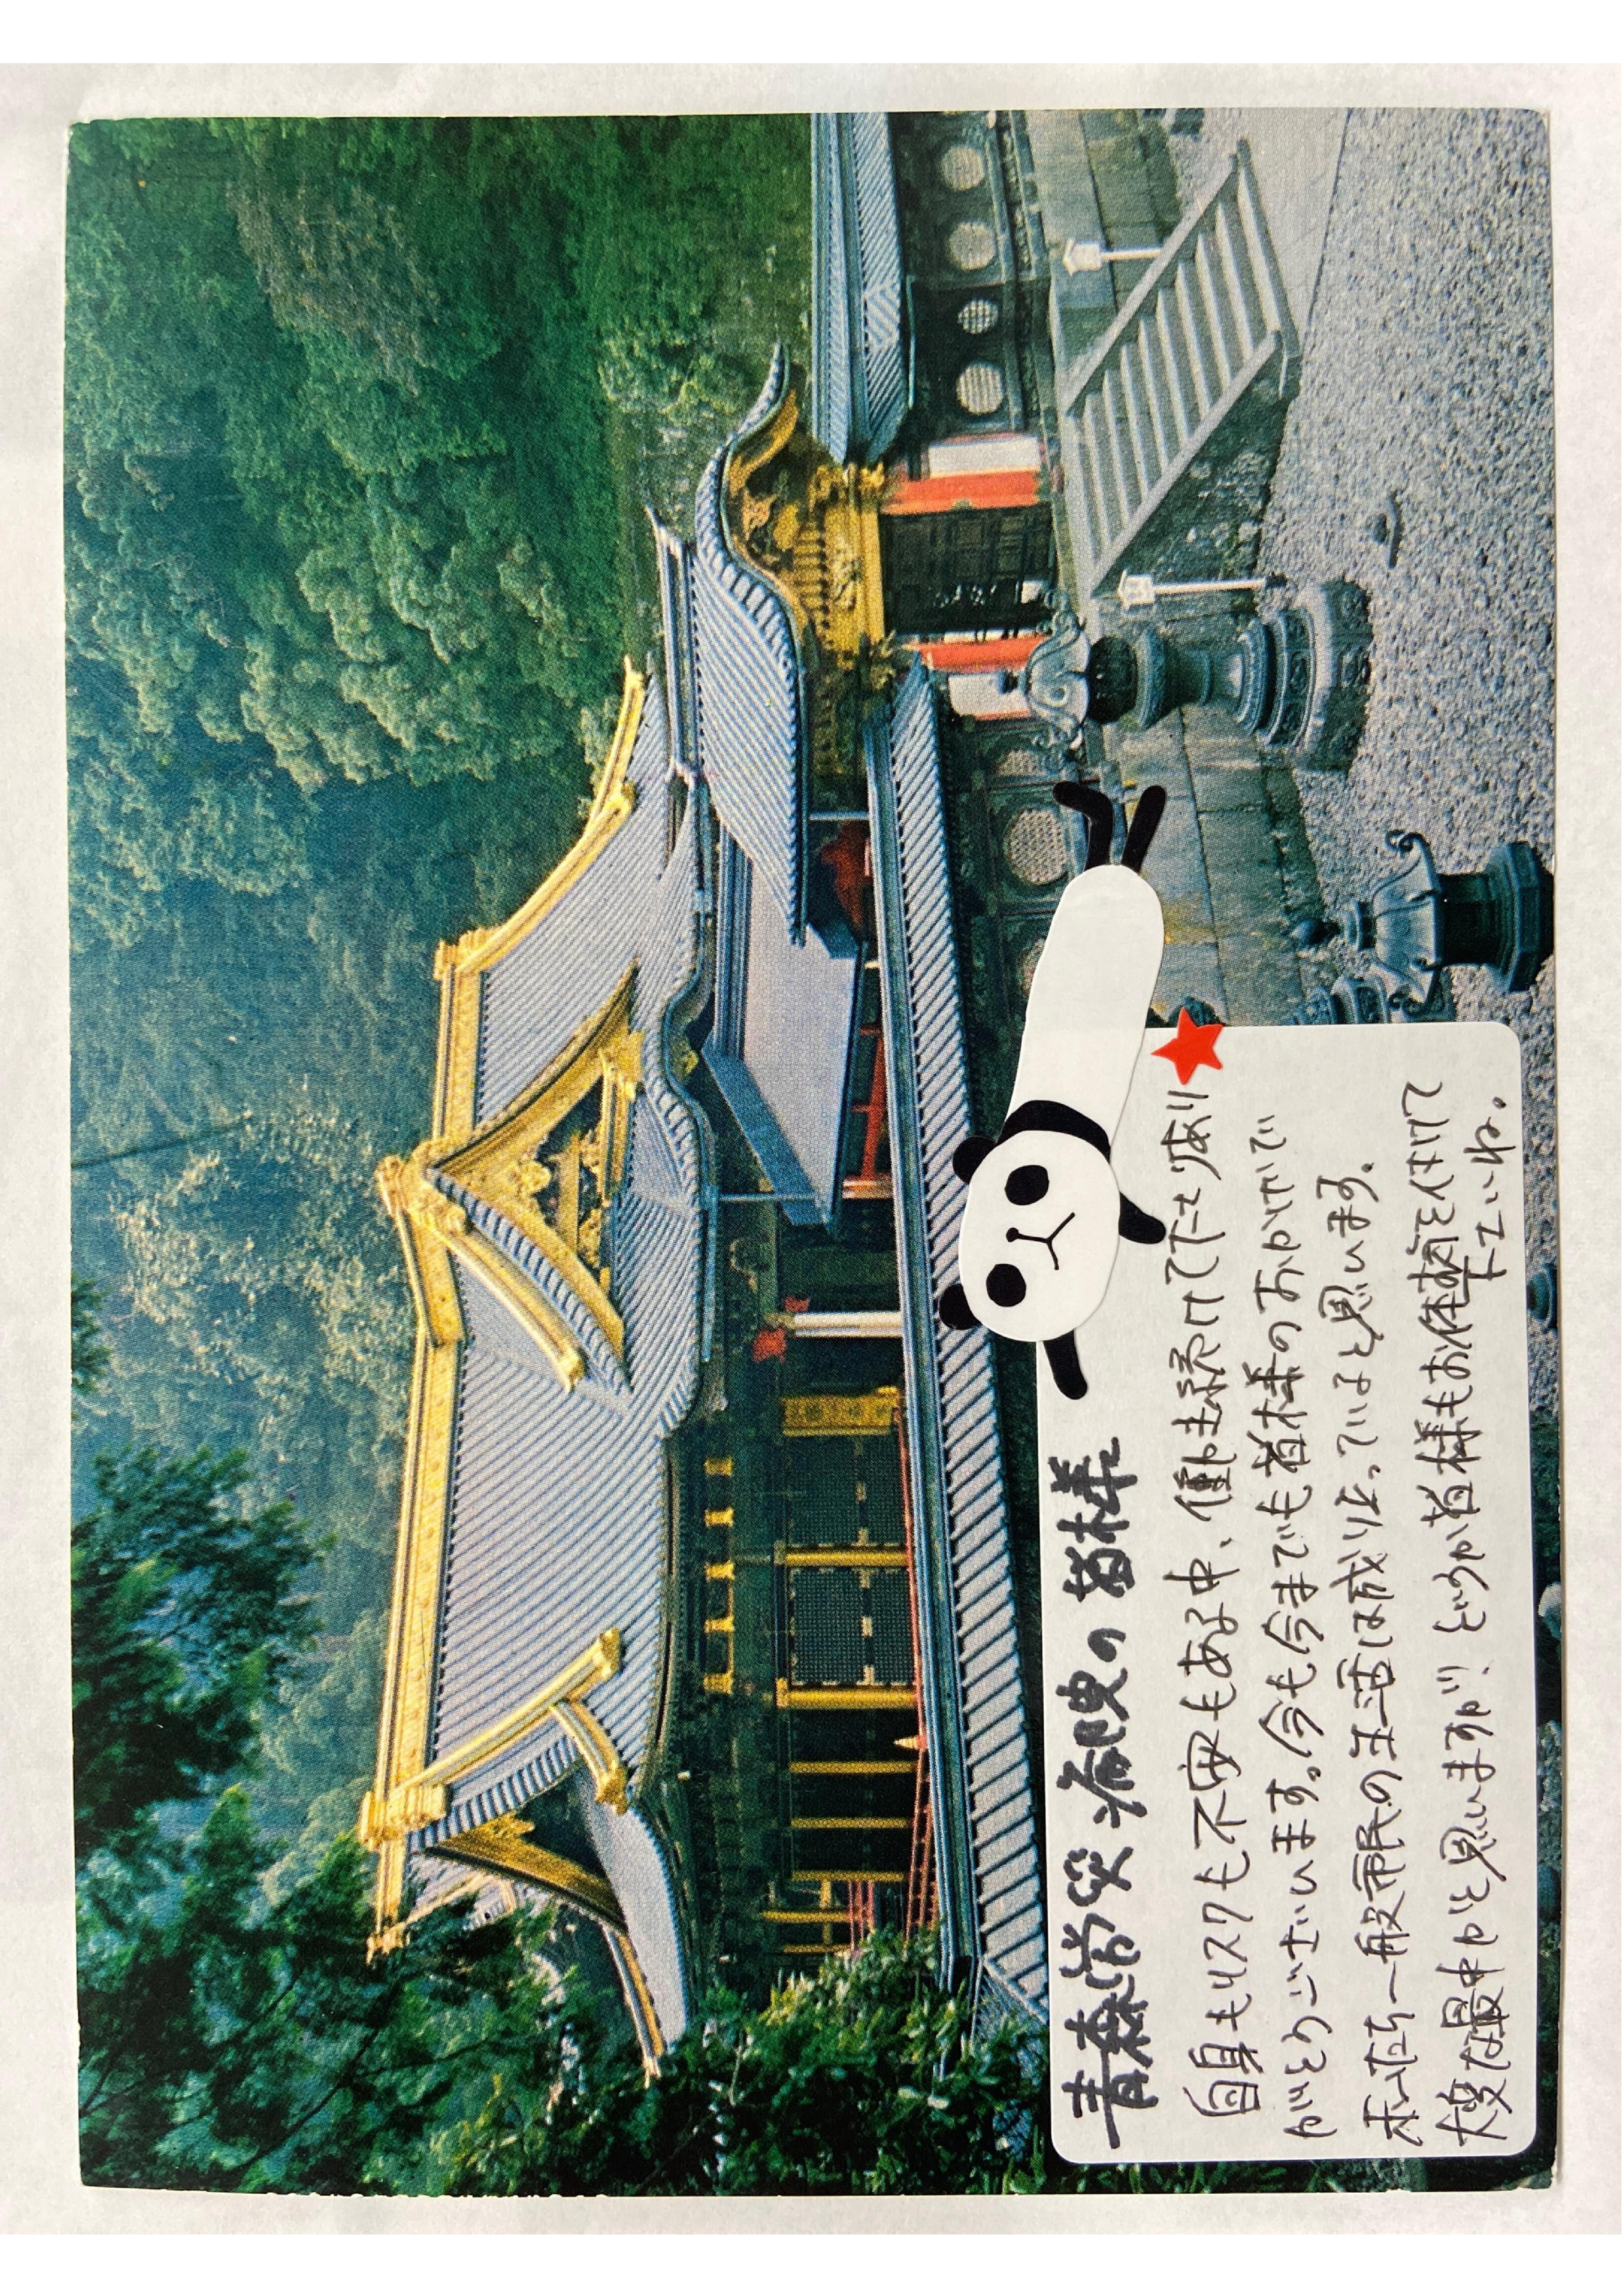 青森労災病院の皆様
自身もリスクも不安もある中、働き続けて下さりあり
がとうございます。今も今までも皆様のおかげで
私たち一般市民の生活は成り立っていると思います。
大変な最中かと思いますが、どうか皆様もお体募ご自愛下さいね。